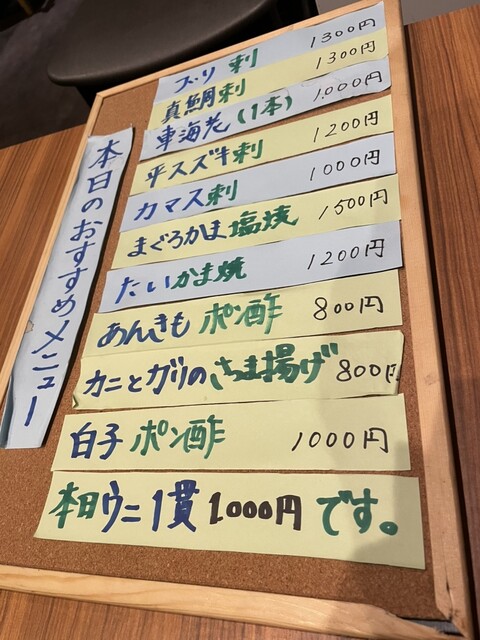 本日のおすすめメニュー
ブリ刺 1300円
真鯛刺 1300円
車海老(1本) 1,000円
平スズキ刺 1200円
カマス刺 1000円
まぐろかま塩焼 1500円
たいかま焼 1200円
あんきもポン酢 800円
カニとガリのさつま揚げ 800円
白子ポン酢 1000円
本日ウニ1貫1.000円です。